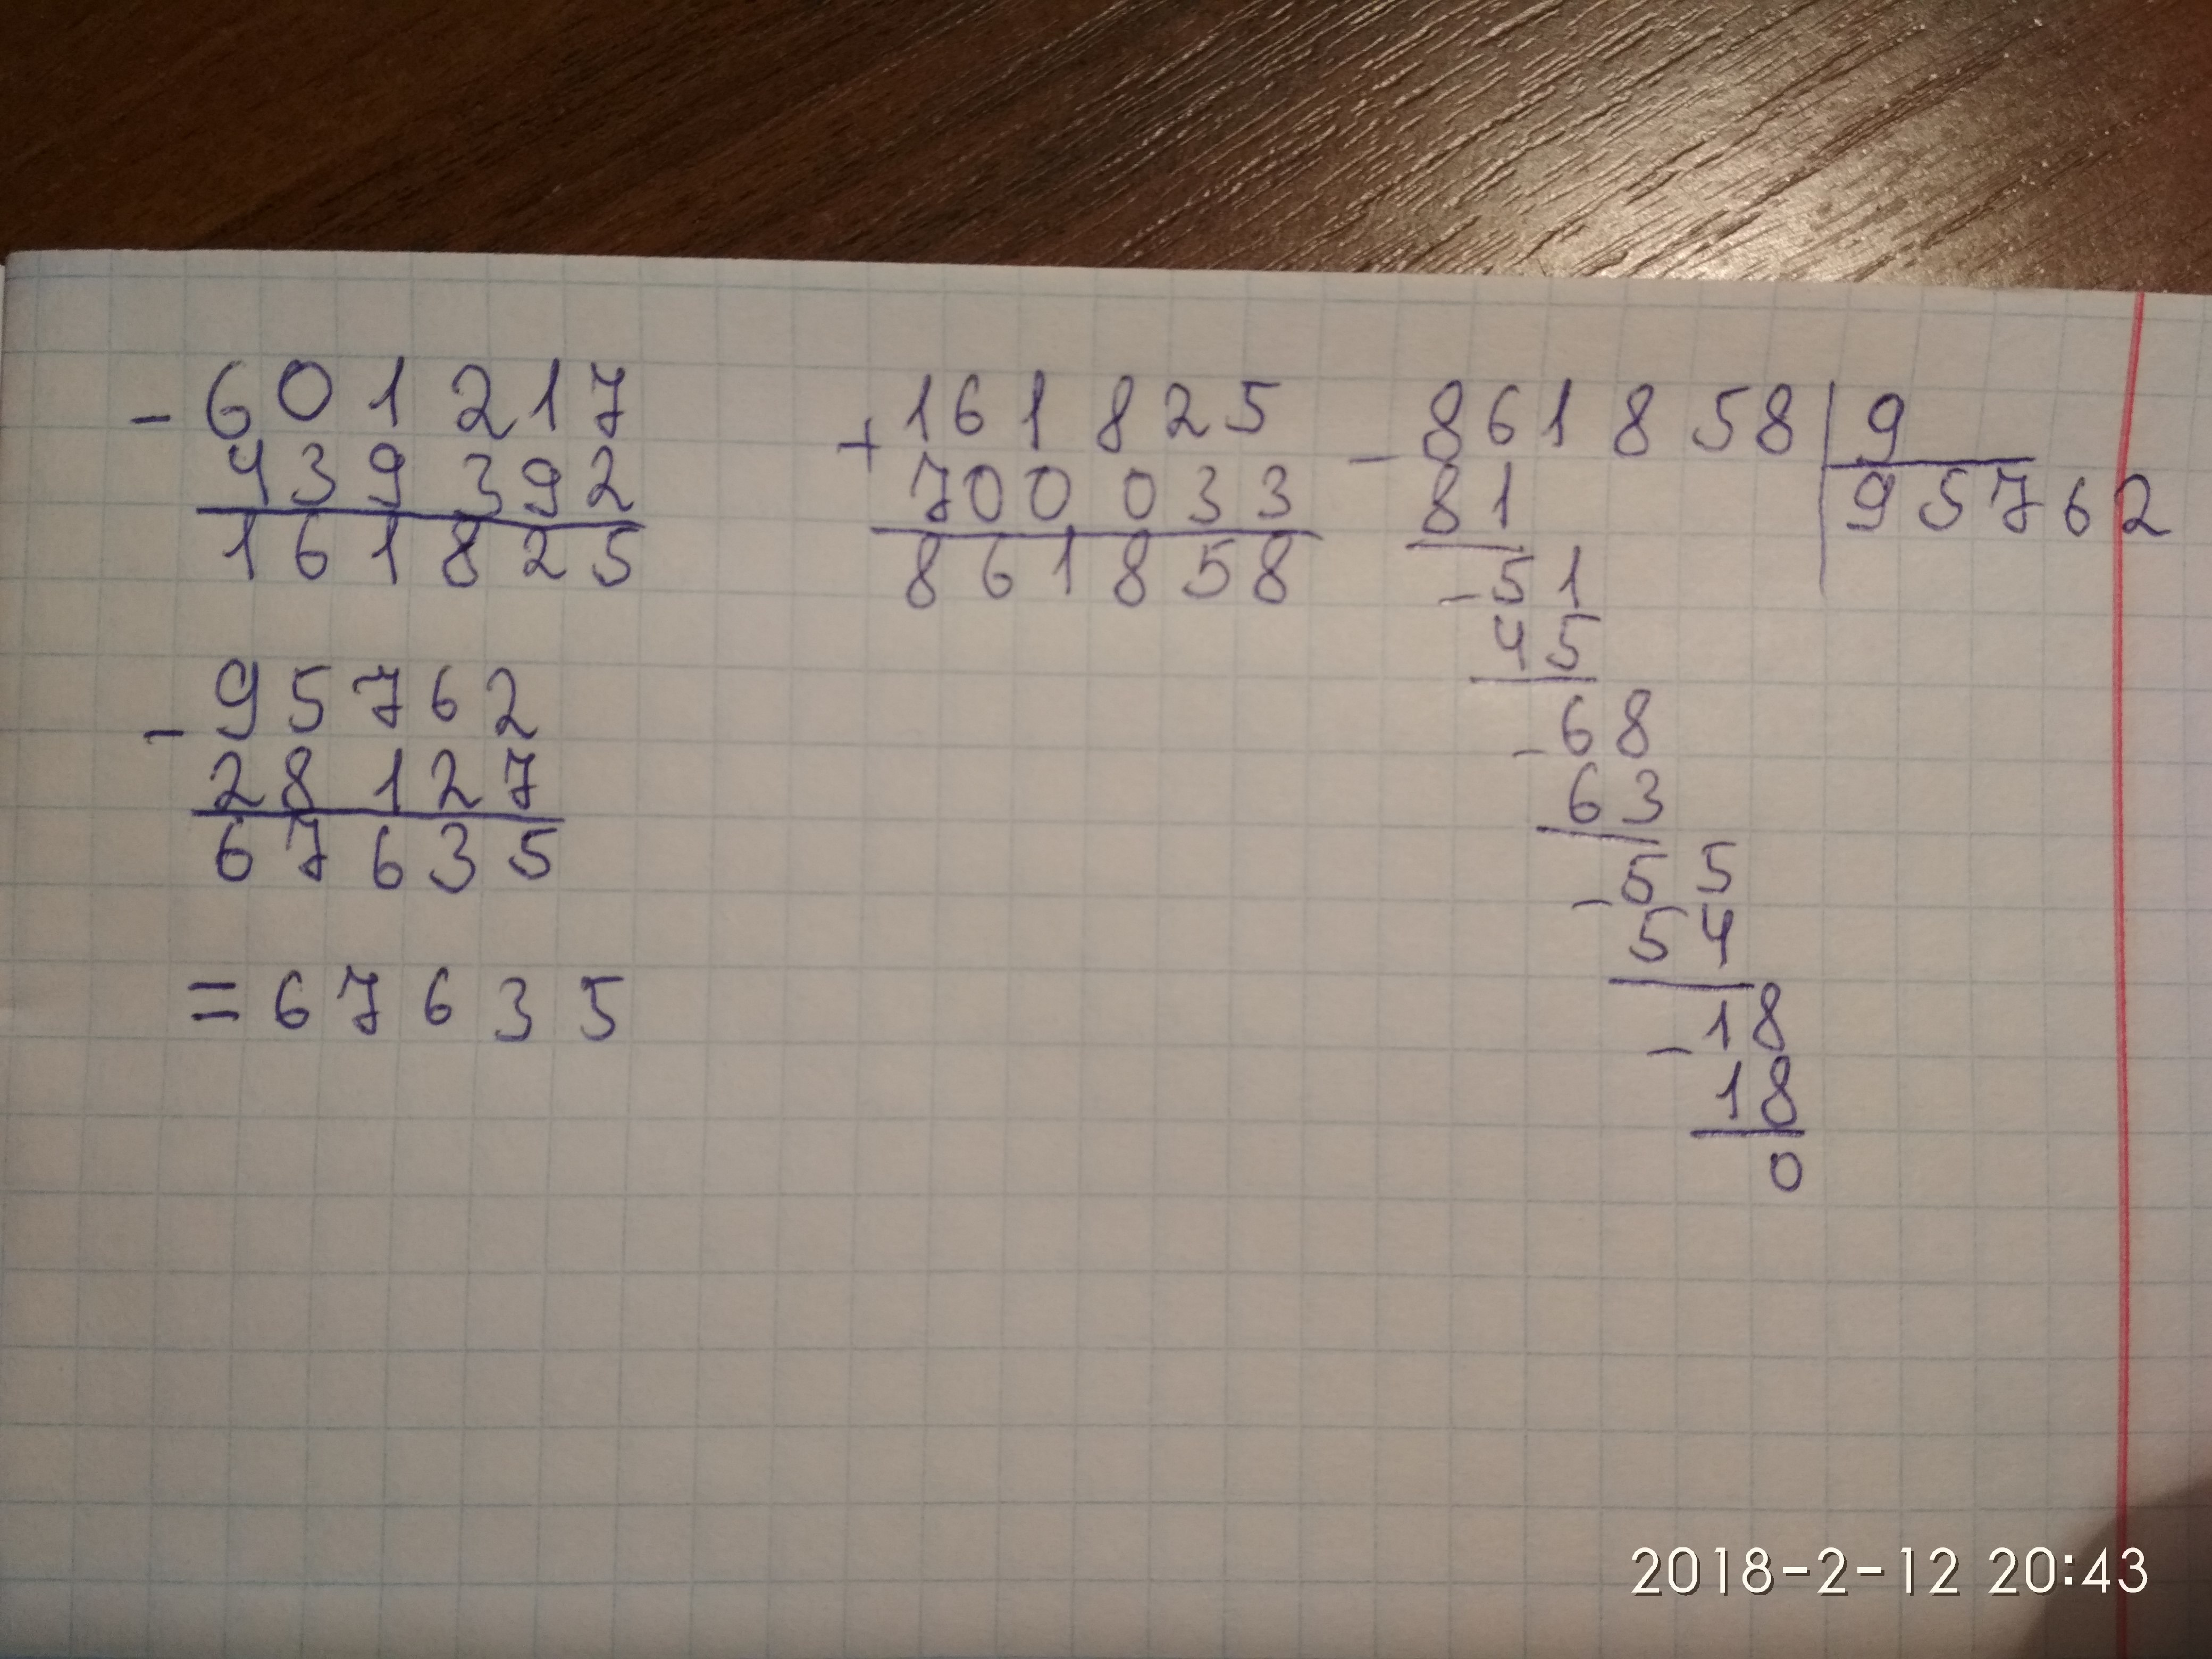 - 601 217
439 392
161 825
+ 161 825
700 033
861 858
- 861 858 | 9
81 95762
- 51
45
- 68
63
- 55
54
- 18
18
0
- 95762
28127
67635
= 67635
2018-2-12 20:43